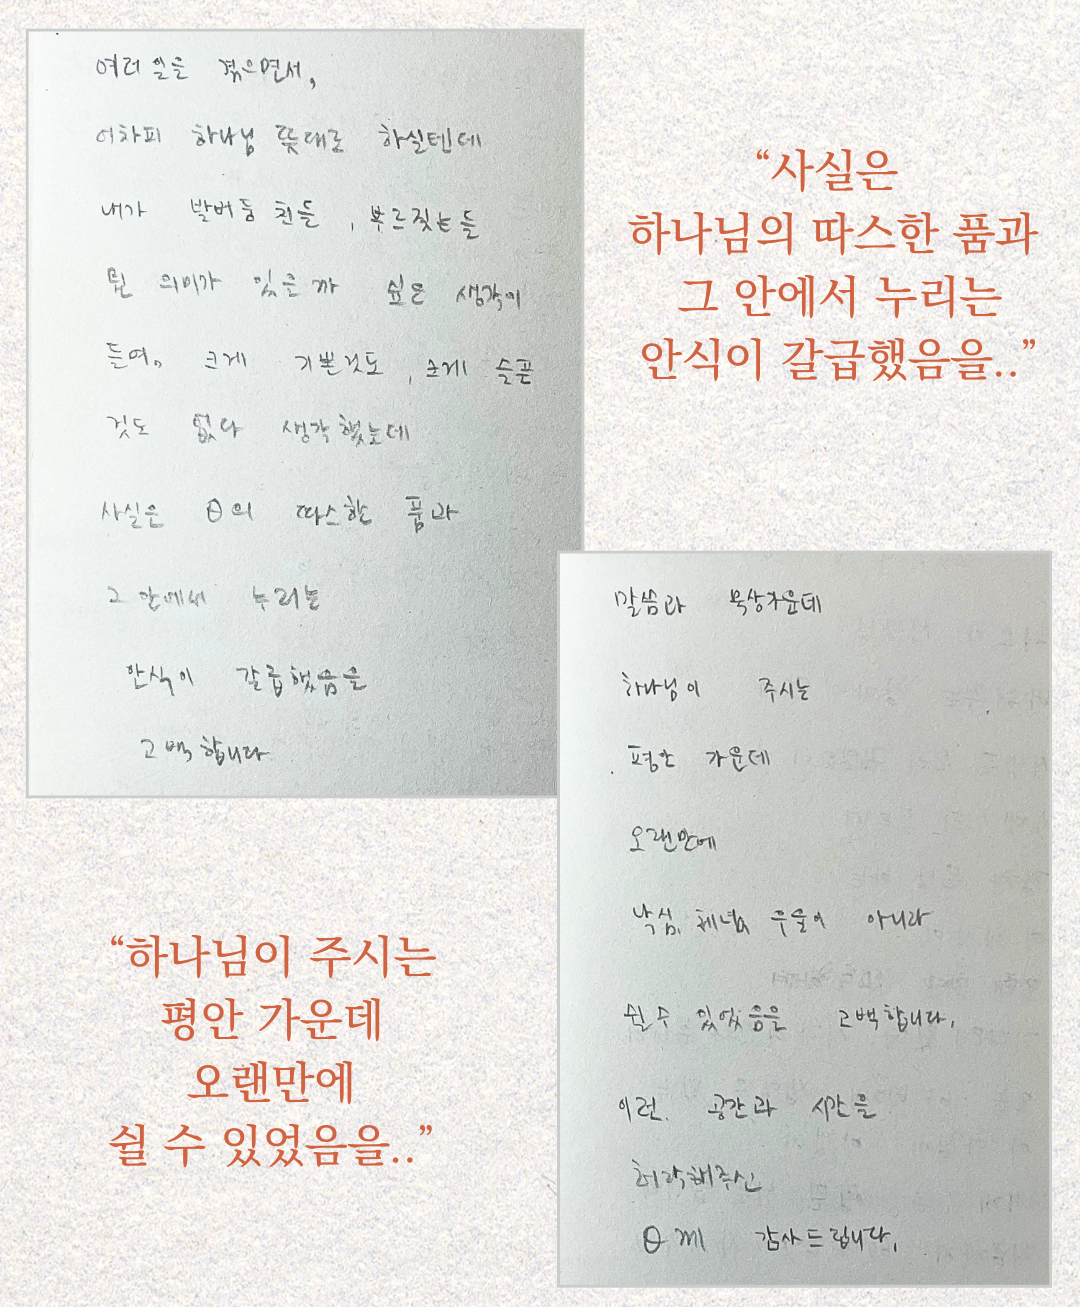 여러 일을 겪으면서,
어차피 하나님 뜻대로 하실텐데
내가 발버둥 친들, 부르짖는들
뭔 의미가 있을까 싶은 생각이
들어. 크게 기쁜것도, 크게 슬픈
것도 없다 생각했는데
사실은 θ의 따스한 품과
그 안에서 누리는
안식이 갈급했음을
고백합니다
“사실은
하나님의 따스한 품과
그 안에서 누리는
안식이 갈급했음을..”
말씀과 묵상가운데
하나님이 주시는
평안 가운데
오랜만에
낙심, 체념, 우울이 아니라
쉴 수 있었음을 고백합니다.
이런 공간과 시간을
허락해주신
θ께 감사드립니다.
“하나님이 주시는
평안 가운데
오랜만에
쉴 수 있었음을..”